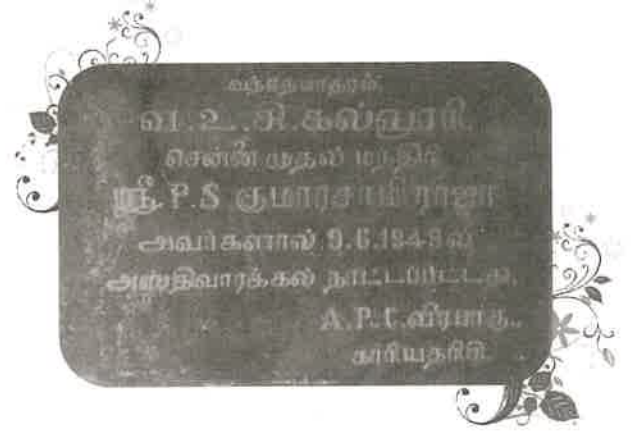 வந்தேமாதரம்
வ.உ.சி.கல்லூரி.
சென்னை முதல் மந்திரி
ஸ்ரீ.P.S குமாரசாமி ராஜா
அவர்களால் 9.6.1949ல்
அஸ்திவாரக்கல் நாட்டப்பட்டது.
A.P.C.வீரபாகு..
காரியதரிசி.